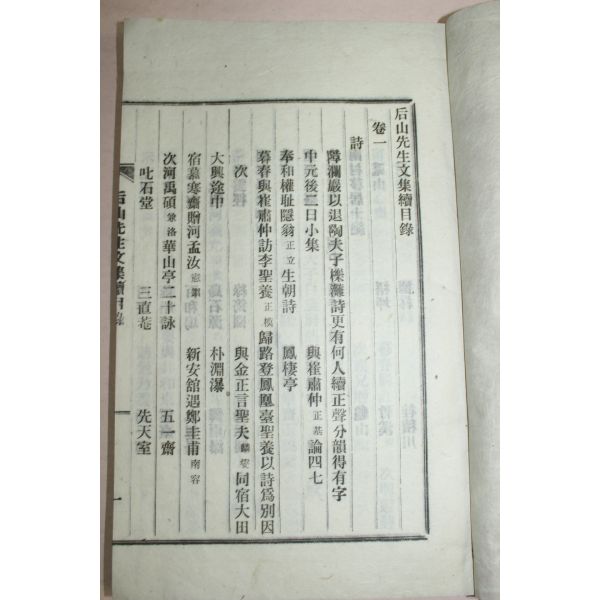 后山先生文集續目錄
卷一
詩
障瀾巖以退陶夫子櫟灘詩更有何人續正聲分韻得有字
中元後二日小集 與崔肅仲正基論四七
奉和權耻隱翁正立生朝詩 鳳棲亭
暮春與崔肅仲訪李聖養正模歸路登鳳凰臺聖養以詩爲別因
次 與金正言聖夫麟燮同宿大田
大興途中 朴淵瀑
宿慕寒齋贈河孟汝憲鎭 新安舘遇鄭圭甫南容
次河禹碩兼洛華山亭二十詠 五一齋
叱石堂 三直菴 先天室
后山先生文集續目錄 一